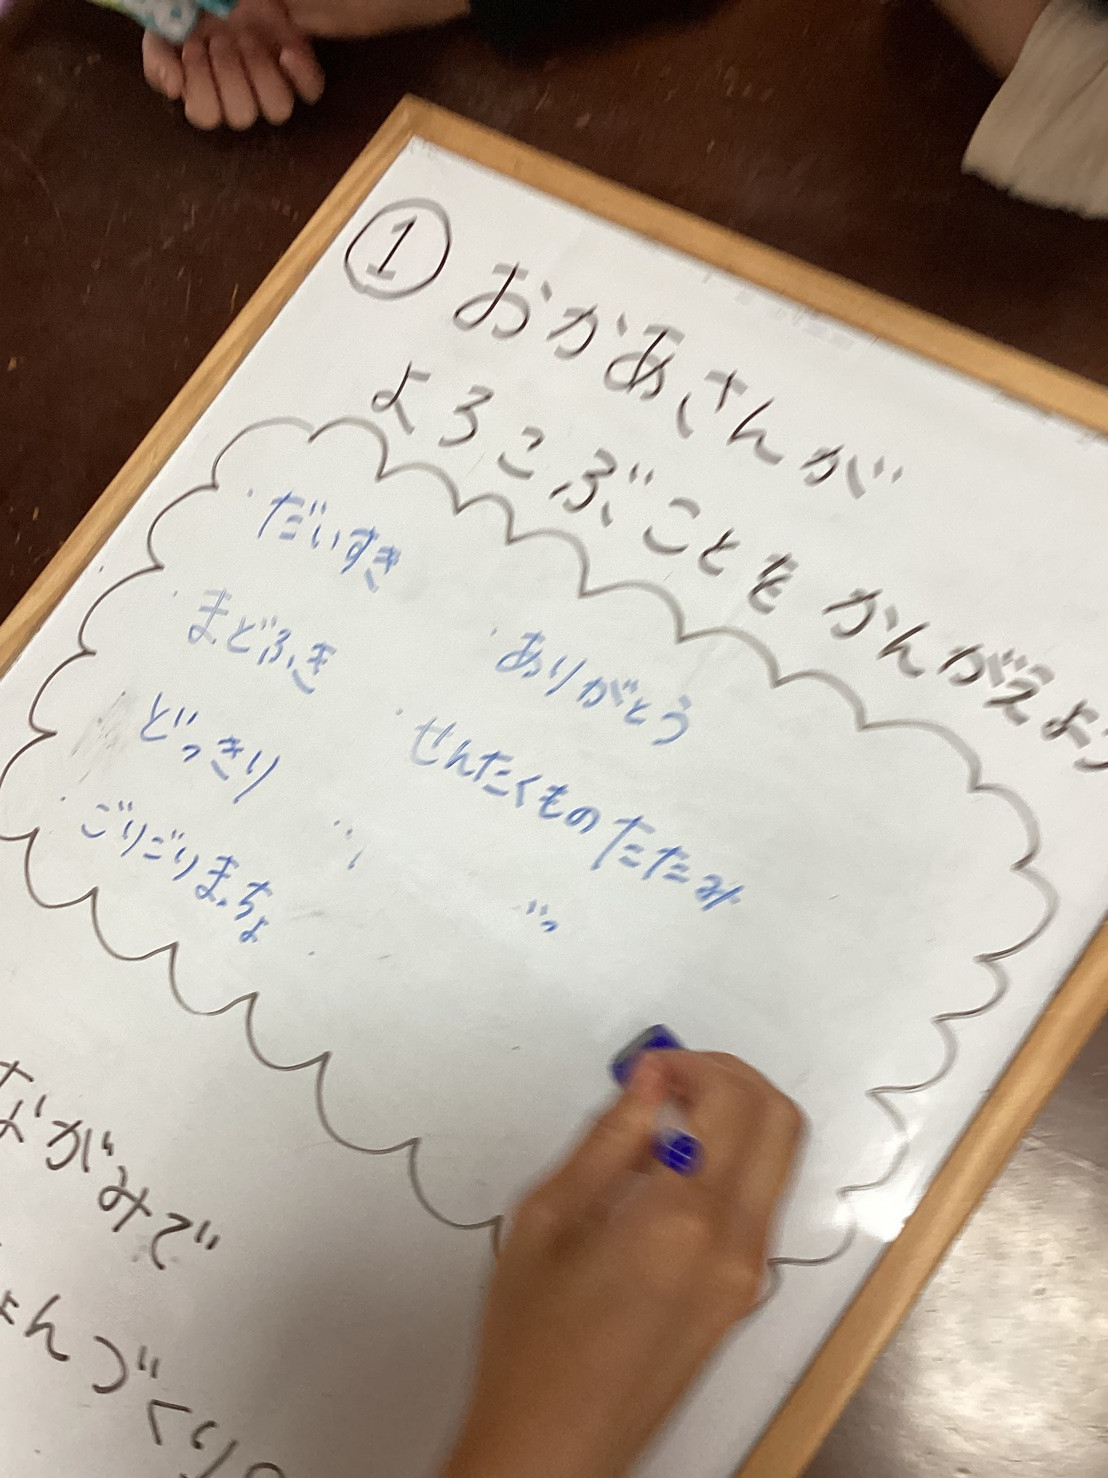 ① おかあさんが
よろこぶことを かんがえよう
・だいすき
・まどふき
どっきり
・ごりごりまっちょ
・ありがとう
・せんたくもの たたみ
がみで
づくり